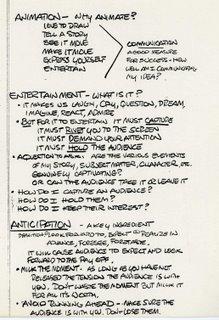 ANIMATION - WHY ANIMATE?
LOVE TO DRAW
TELL A STORY
SEE IT MOVE
MAKE IT MOVE
EXPRESS YOURSELF
ENTERTAIN
COMMUNICATION
A GOOD MEASURE
FOR SUCCESS - HOW
WELL AM I COMMUNICATING
MY IDEA?
ENTERTAINMENT - WHAT IS IT?
• IT MAKES US LAUGH, CRY, QUESTION, DREAM,
IMAGINE, REACT, ADMIRE
• BUT FOR IT TO ENTERTAIN IT MUST CAPTURE
IT MUST RIVET YOU TO THE SCREEN
IT MUST DEMAND YOUR ATTENTION
IT MUST HOLD THE AUDIENCE
• A QUESTION TO ASK: ARE THE VARIOUS ELEMENTS
OF MY STORY, SUBJECT MATTER, CHARACTER, ETC.
GENUINELY CAPTIVATING?
OR CAN THE AUDIENCE TAKE IT OR LEAVE IT
• HOW DO I CAPTURE AN AUDIENCE?
HOW DO I HOLD THEM?
HOW DO I KEEP THEIR INTEREST?
ANTICIPATION - A KEY INGREDIENT
DEFINITION: LOOK FORWARD TO, EXPECT, REALIZE IN
ADVANCE, FORESEE, FORETASTE,
IT WILL CAUSE AN AUDIENCE TO EXPECT AND LOOK
FORWARD TO THE PAY OFF.
• MILK THE MOMENT - AS LONG AS YOU HAVEN'T
RELEASED THE TENSION THE AUDIENCE IS WITH
YOU. DON'T WASTE THE MOMENT BUT MILK IT
FOR ALL IT'S WORTH.
• AVOID RUNNING AHEAD - MAKE SURE THE
AUDIENCE IS WITH YOU. DON'T LOSE THEM.